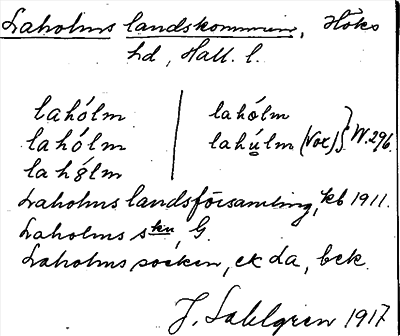 Laholms landskommun, Höks
hd, Hall. l.
lahólm | lahólm
lahólm | lahúlm (Vox) } W. 296.
lahólm
Laholms landsförsamling, kb 1911.
Laholms skn, G.
Laholms socken, ek da, bek.
J. Sahlgren 1917